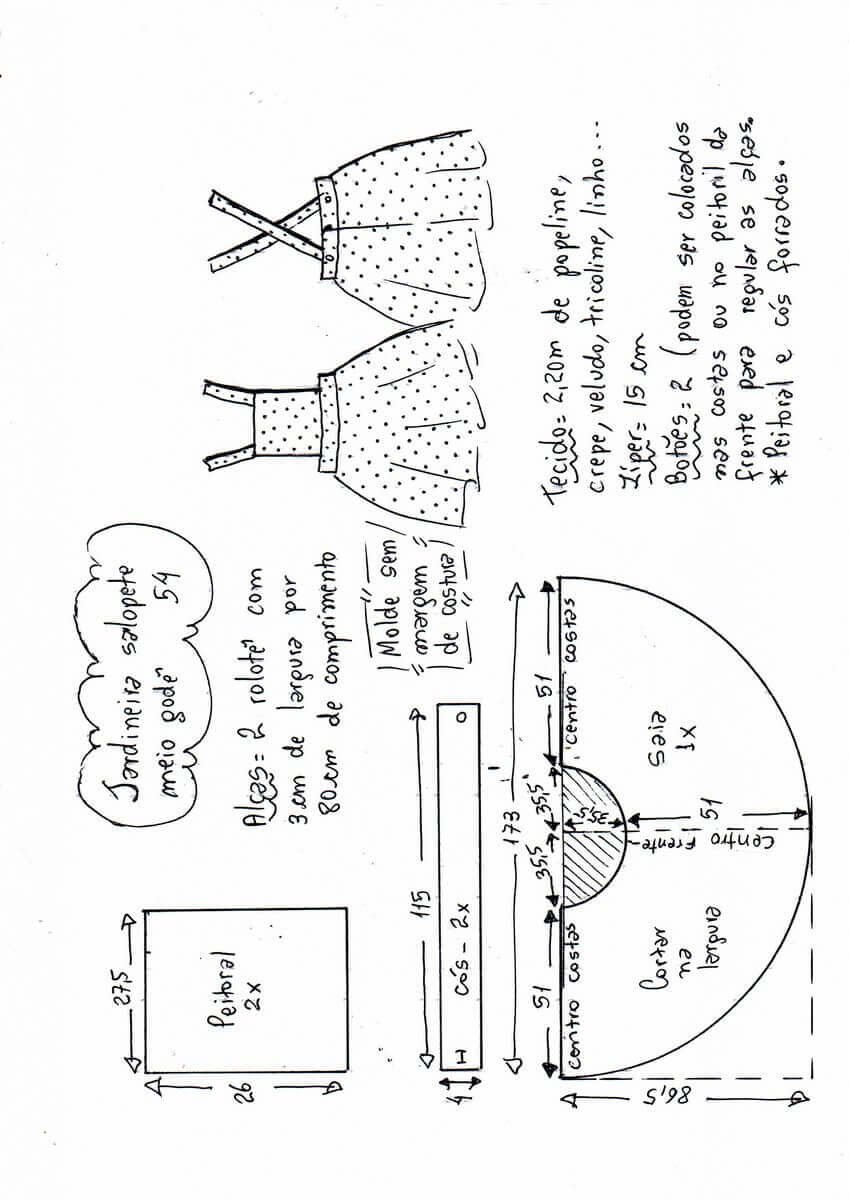 Jardineira salopete
meio godê 54
Alças= 2 rolotê com
3cm de largura por
80cm de comprimento
Molde sem
margem
de costura
27,5
26
Peitoral
2x
115
4
H
cós - 2x
O
173
51
35,5
35,5
51
centro costas
centro costas
35,5
51
centro Frente
Saia
1x
Cortar
na
largura
86,5
Tecido= 2,20m de popeline,
crepe, veludo, tricoline, linho...
Zíper= 15 cm
Botões= 2 (podem ser colocados
nas costas ou no peitoril da
frente para regular as alças.
* Peitoral e cós forrados.